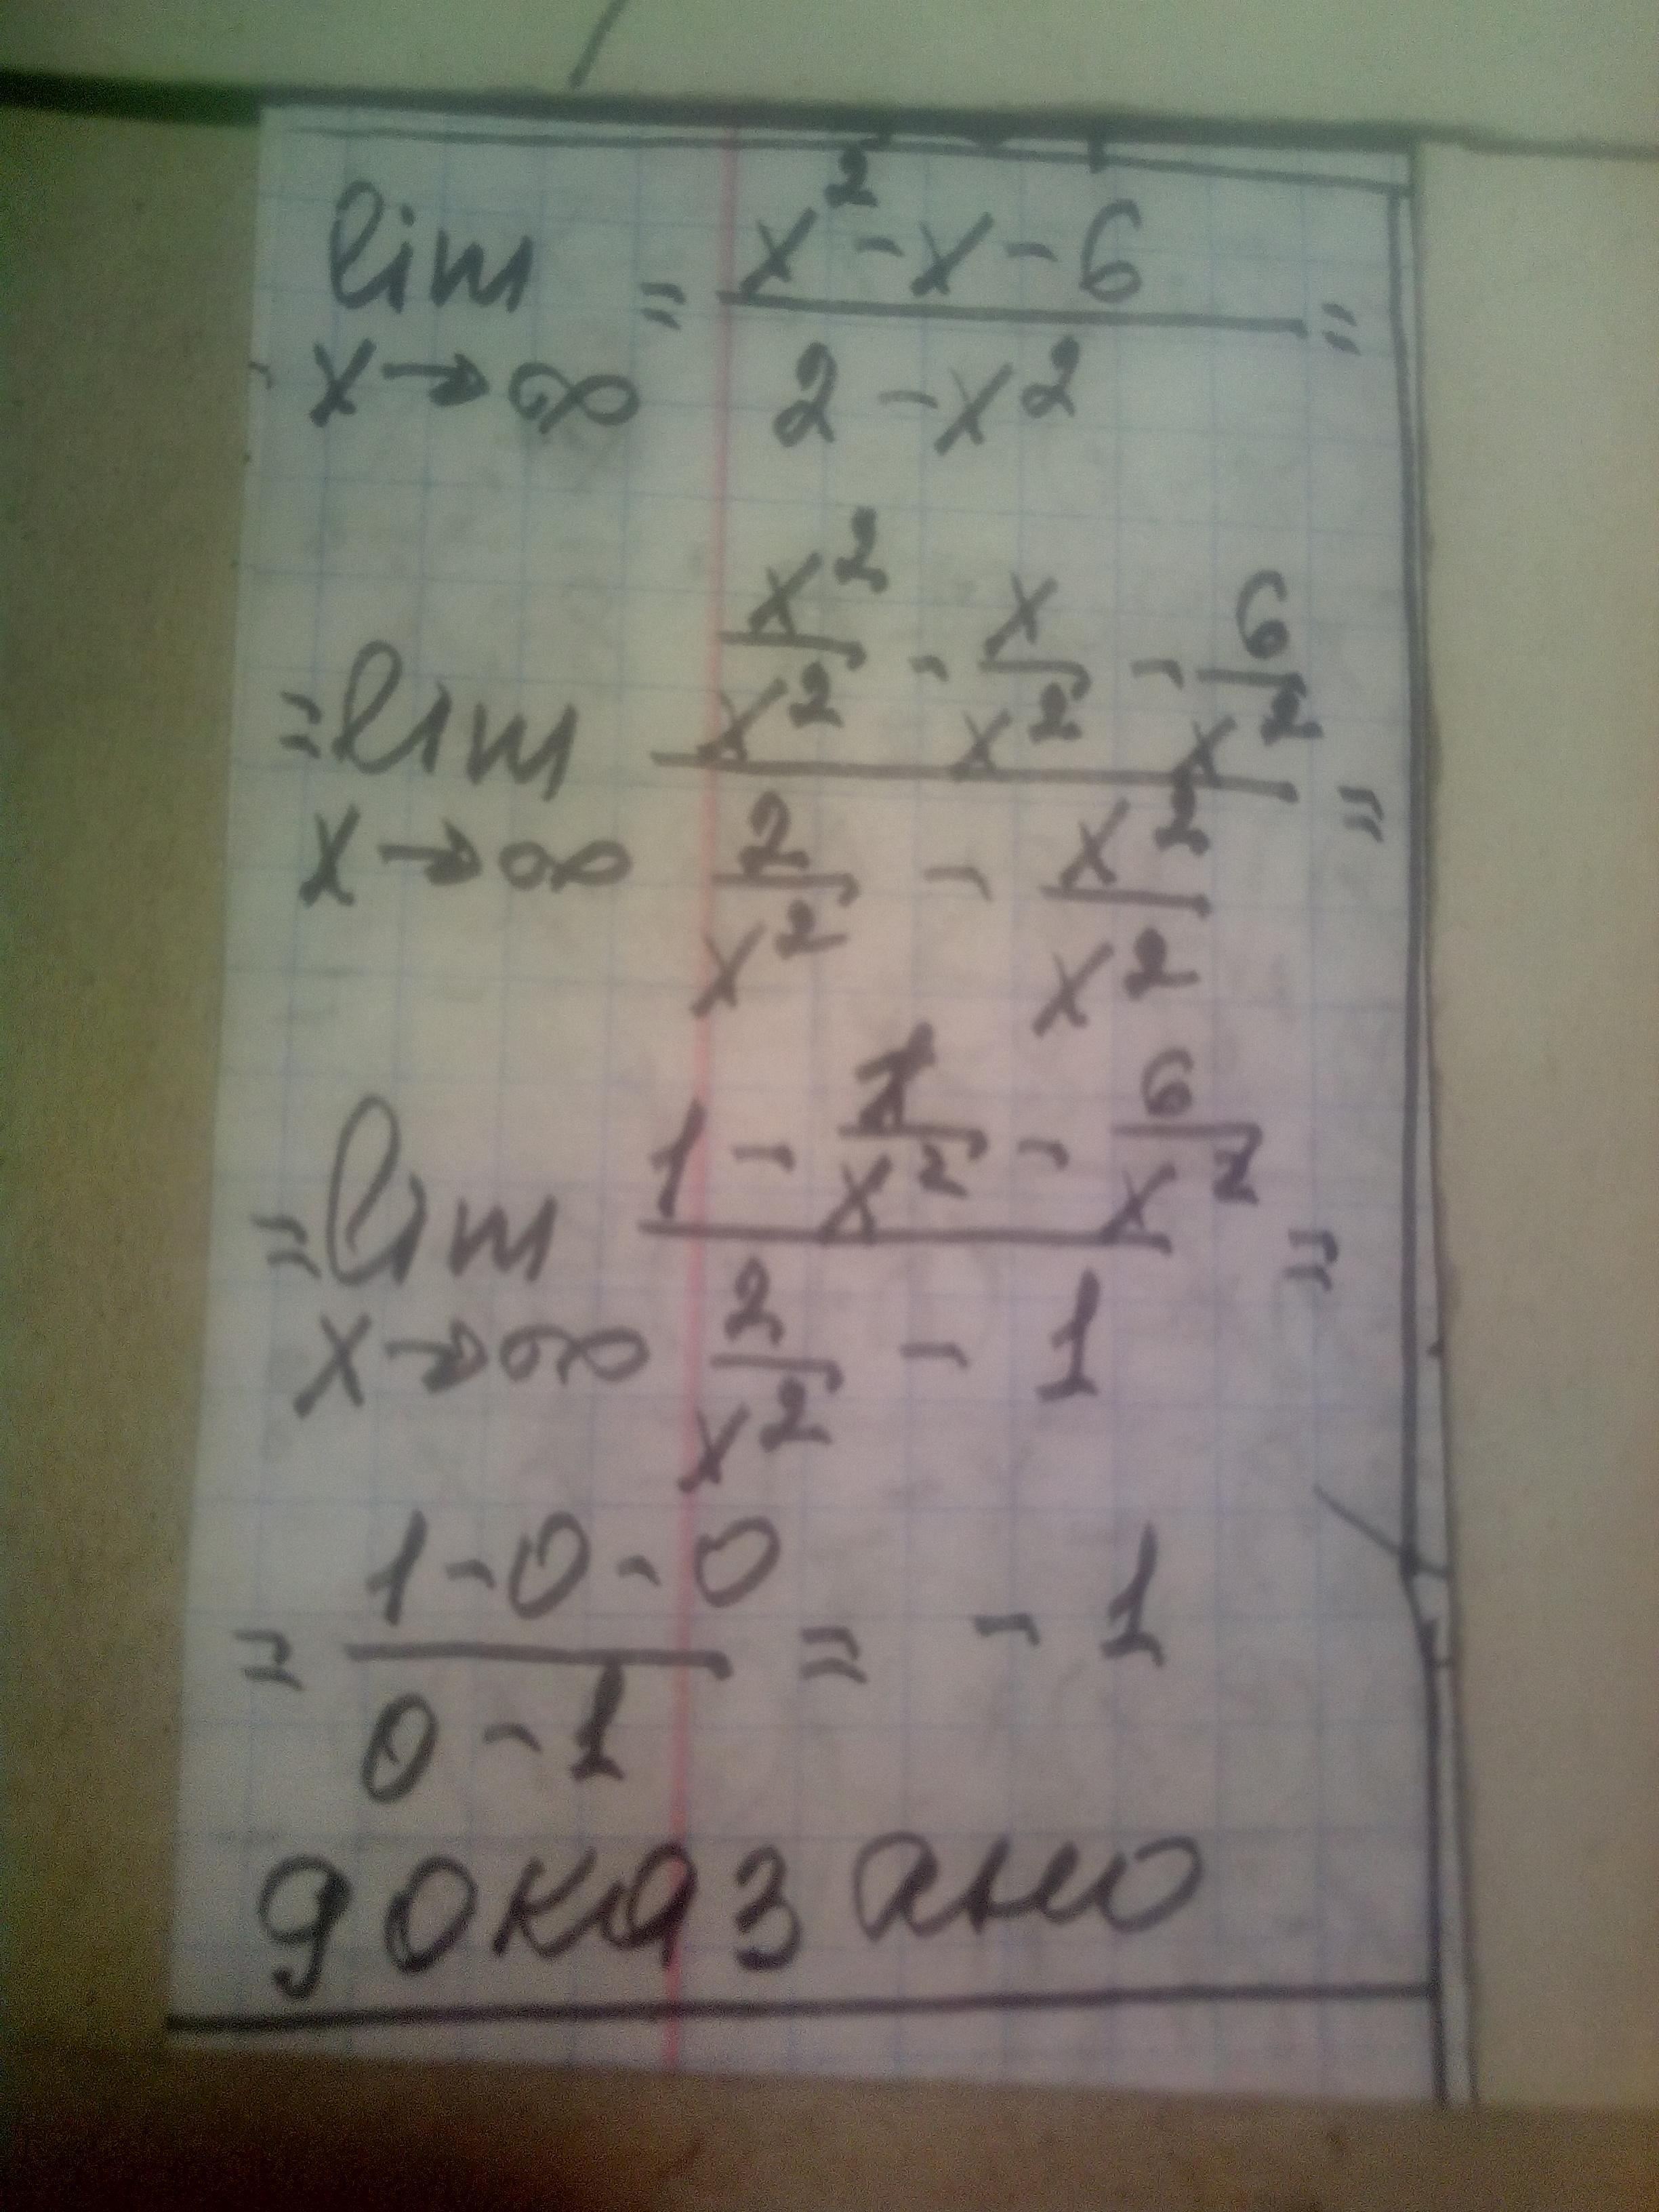 lim x→∞ = (x² - x - 6) / (2 - x²) =
= lim x→∞ (x²/x² - x/x² - 6/x²) / (2/x² - x²/x²) =
= lim x→∞ (1 - 1/x² - 6/x²) / (2/x² - 1) =
= (1 - 0 - 0) / (0 - 1) = - 1
доказано